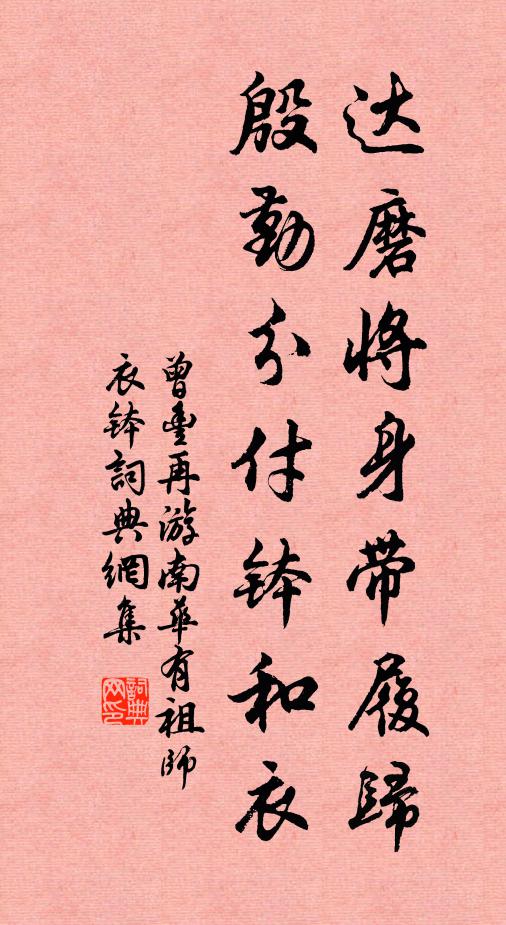 达磨将身带履歸
殷勤分付钵和衣
曾豊再游南華有祖师
衣钵詞典網集
詞典网印